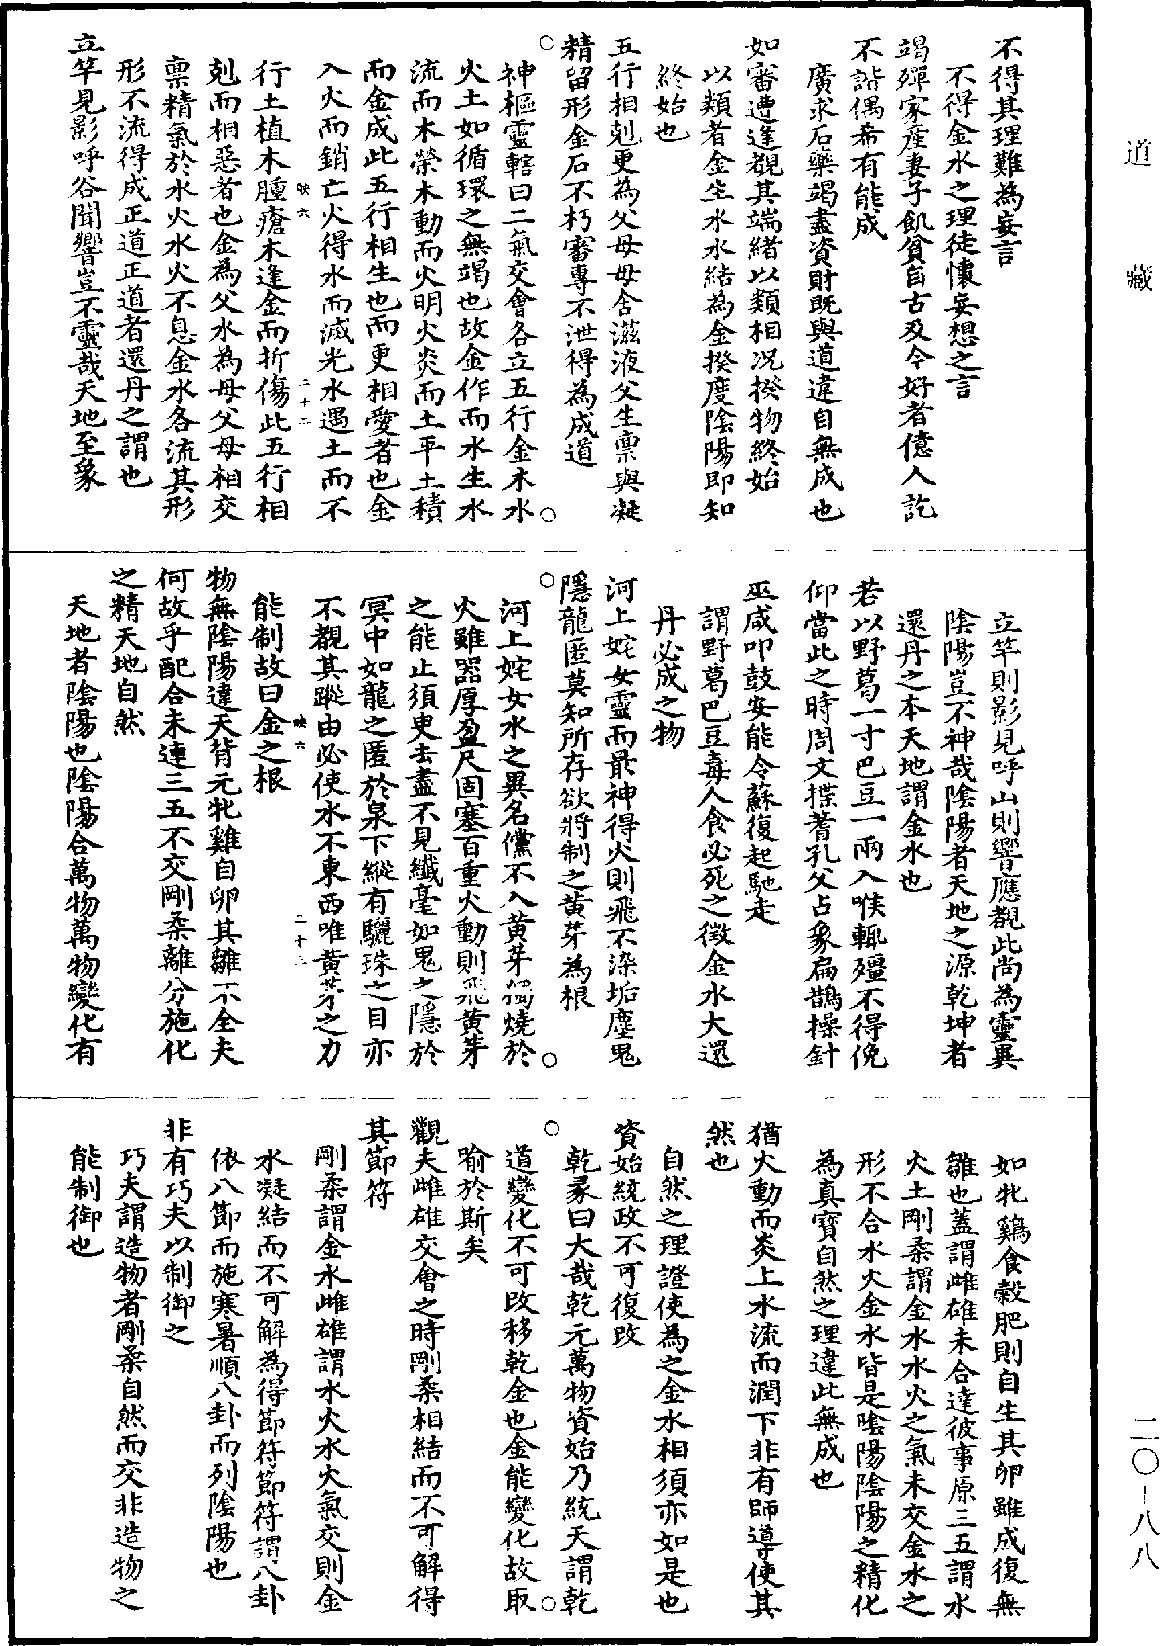 道藏
不得其理難為妄言
不得金水之理徒懷妄想之言
竭殫家產妻子飢貧自古及今好者億人訖
不諧偶希有能成
廣求石藥竭盡資財既與道違自無成也
如審遭逢覩其端緒以類相况揆物終始
以類者金生水水結為金揆度陰陽即知
終始也
五行相剋更為父母母含滋液父生禀與凝
精留形金石不朽審專不泄得為成道
○神樞靈轄曰二氣交會各立五行金木水○
火土如循環之無竭也故金作而水生水
流而木榮木動而火明火炎而土平土積
而金成此五行相生也而更相愛者也金
入火而銷亡火得水而滅光水遇土而不
映六 二十二
行土植木腫瘡木逢金而折傷此五行相
剋而相惡者也金為父水為母父母相交
禀精氣於水火水火不息金水各流其形
形不流得成正道正道者還丹之謂也
立竿見影呼谷聞響豈不靈哉天地至象
立竿則影見呼山則響應觀此尚為靈異
陰陽豈不神哉陰陽者天地之源乾坤者
還丹之本天地謂金水也
若以野葛一寸巴豆一兩入喉輒殭不得俛
仰當此之時周文揲蓍孔父占象扁鵲操針
巫咸叩鼓安能令蘇復起馳走
謂野葛巴豆毒人食必死之徵金水大還
丹必成之物
河上姹女靈而最神得火則飛不染垢塵鬼
隱龍匿莫知所存欲將制之黃芽為根
○河上姹女水之異名儻不入黃芽獨燒於○
火雖器厚盈尺固塞百重火動則飛黃芽
之能止須臾去盡不見纖毫如鬼之隱於
冥中如龍之匿於泉下縱有驪珠之目亦
不覩其蹤由必使水不東西唯黃芽之力
映六 二十三
能制故曰金之根
物無陰陽違天背元牝雞自卵其雛不全夫
何故乎配合未連三五不交剛柔離分施化
之精天地自然
天地者陰陽也陰陽合萬物萬物變化有
如牝鷄食穀肥則自生其卵雖成復無
雛也蓋謂雌雄未合達彼事原三五謂水
火土剛柔謂金水水火之氣未交金水之
形不合水火金水皆是陰陽陰陽之精化
為真寶自然之理違此無成也
猶火動而炎上水流而潤下非有師導使其
然也
自然之理證使為之金水相須亦如是也
資始統政不可復改
○乾彖曰大哉乾元萬物資始乃統天謂乾○
道變化不可改移乾金也金能變化故取
喻於斯矣
觀夫雌雄交會之時剛柔相結而不可解得
其節符
剛柔謂金水雌雄謂水火水火氣交則金
水凝結而不可解為得節符節符謂八卦
依八節而施寒暑順八卦而列陰陽也
非有巧夫以制御之
巧夫謂造物者剛柔自然而交非造物之
能制御也
二〇-八八